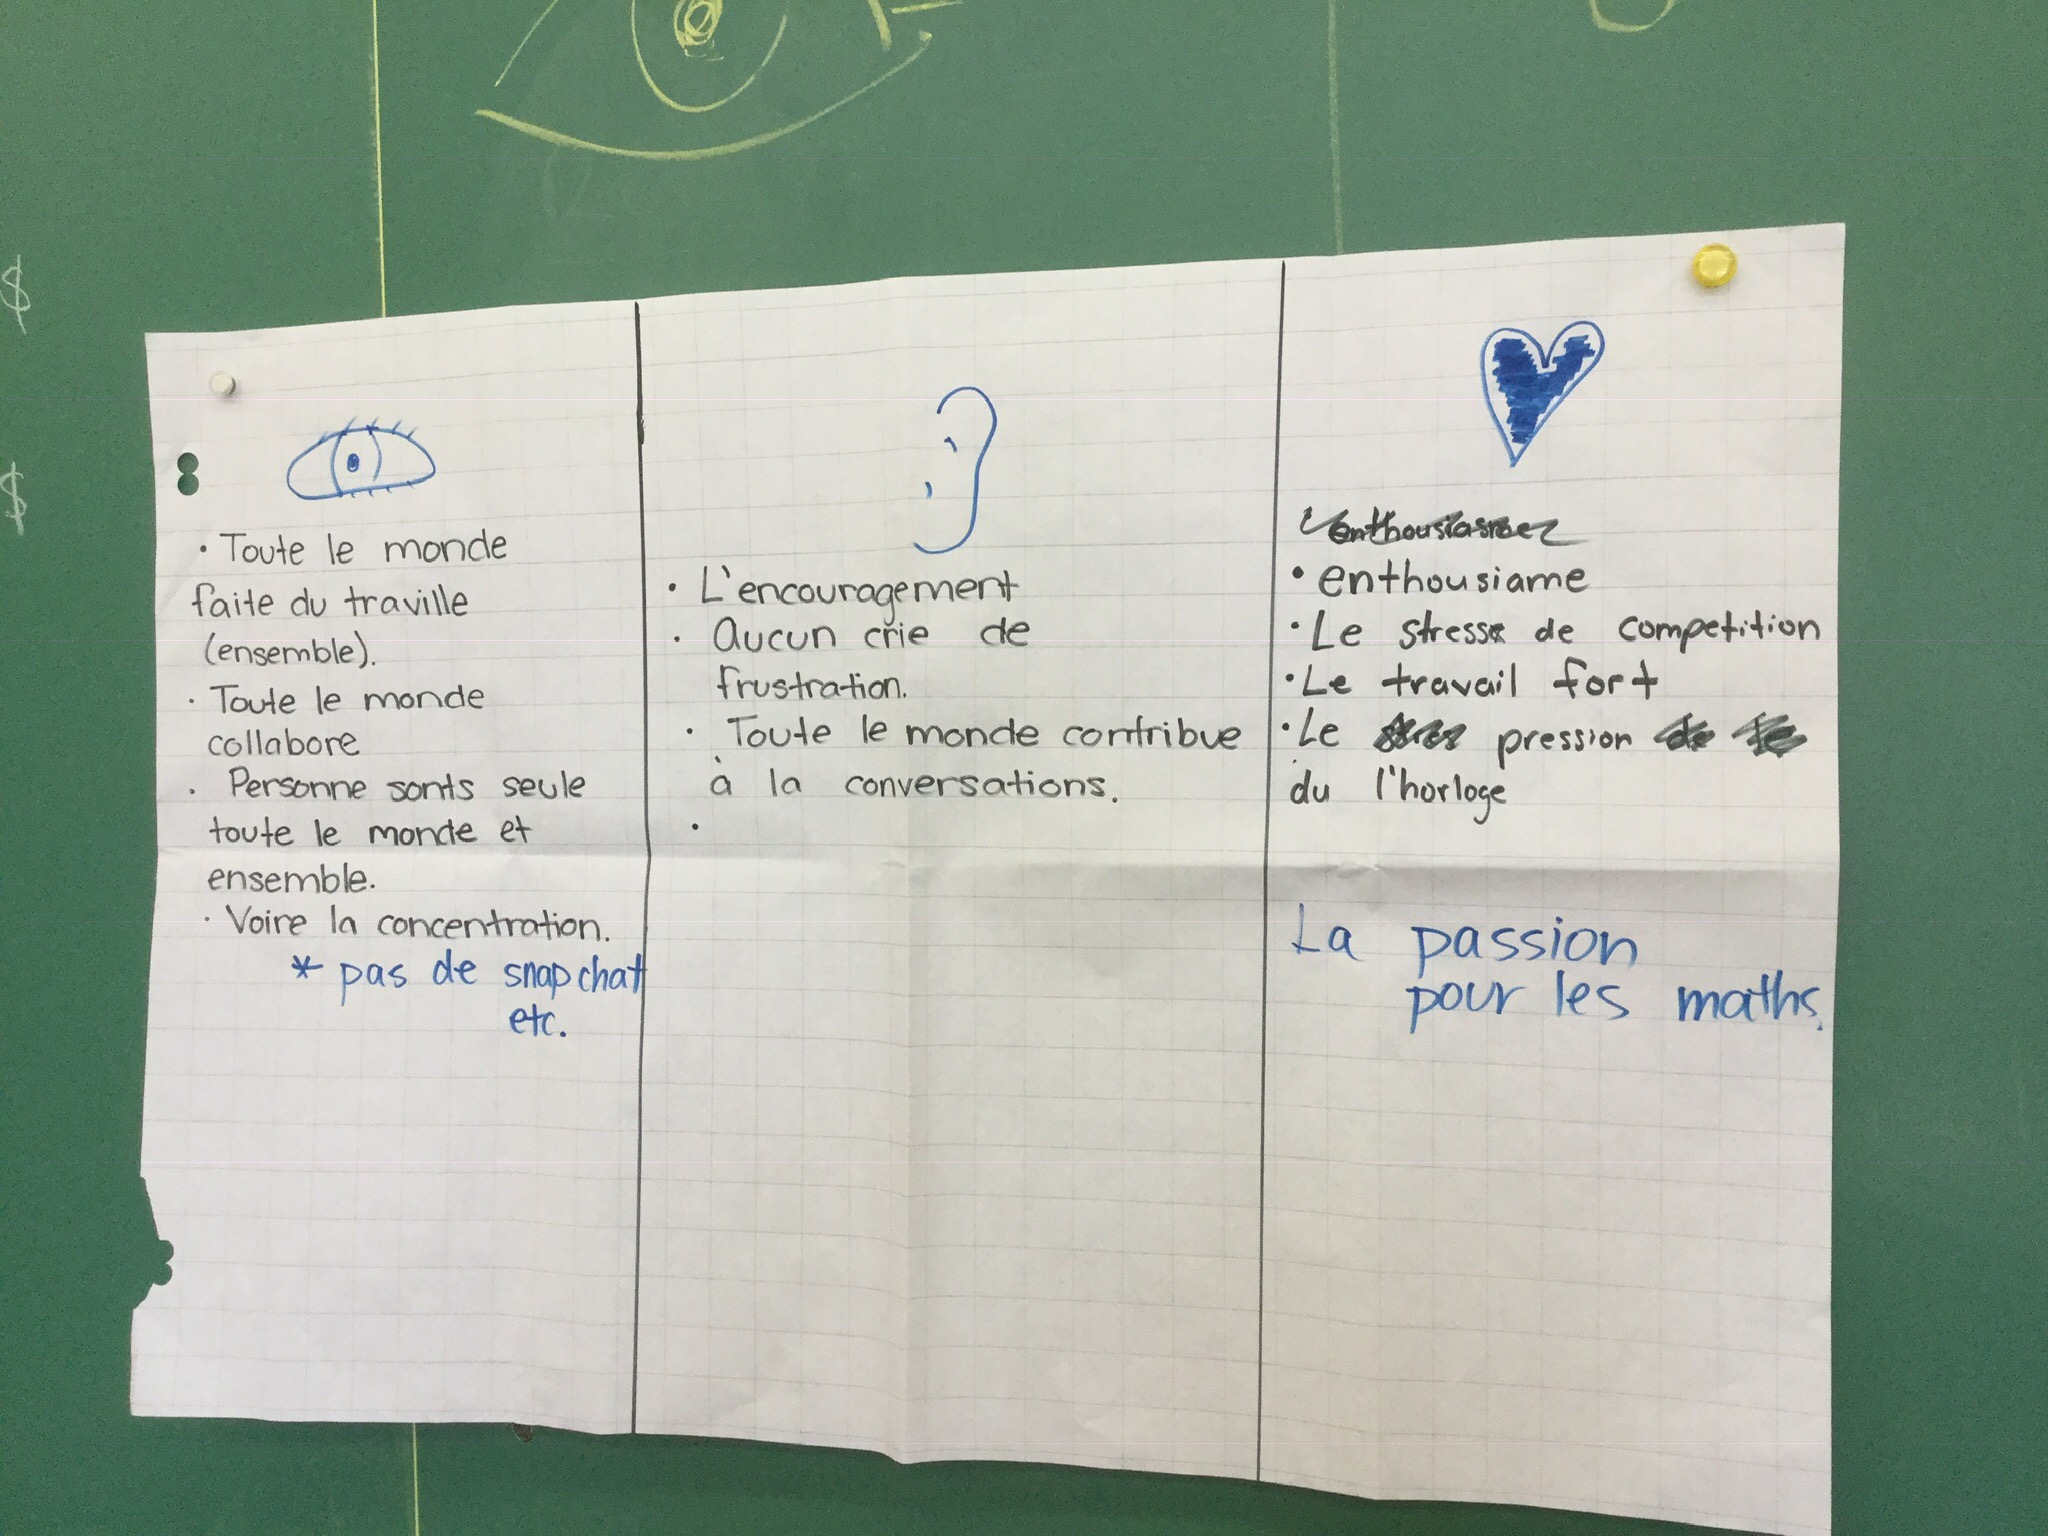 $
$
· Toute le monde
faite du traville
(ensemble).
· Toute le monde
collabore
· Personne sonts seule
toute le monde et
ensemble.
· Voire la concentration.
* pas de snapchat
etc.
· L'encouragement
· Aucun crie de
frustration.
· Toute le monde contribue
à la conversations.
·
enthousiasme
• enthousiame
· Le stress de competition
· Le travail fort
· Le pression
du l'horloge
La passion
pour les maths.